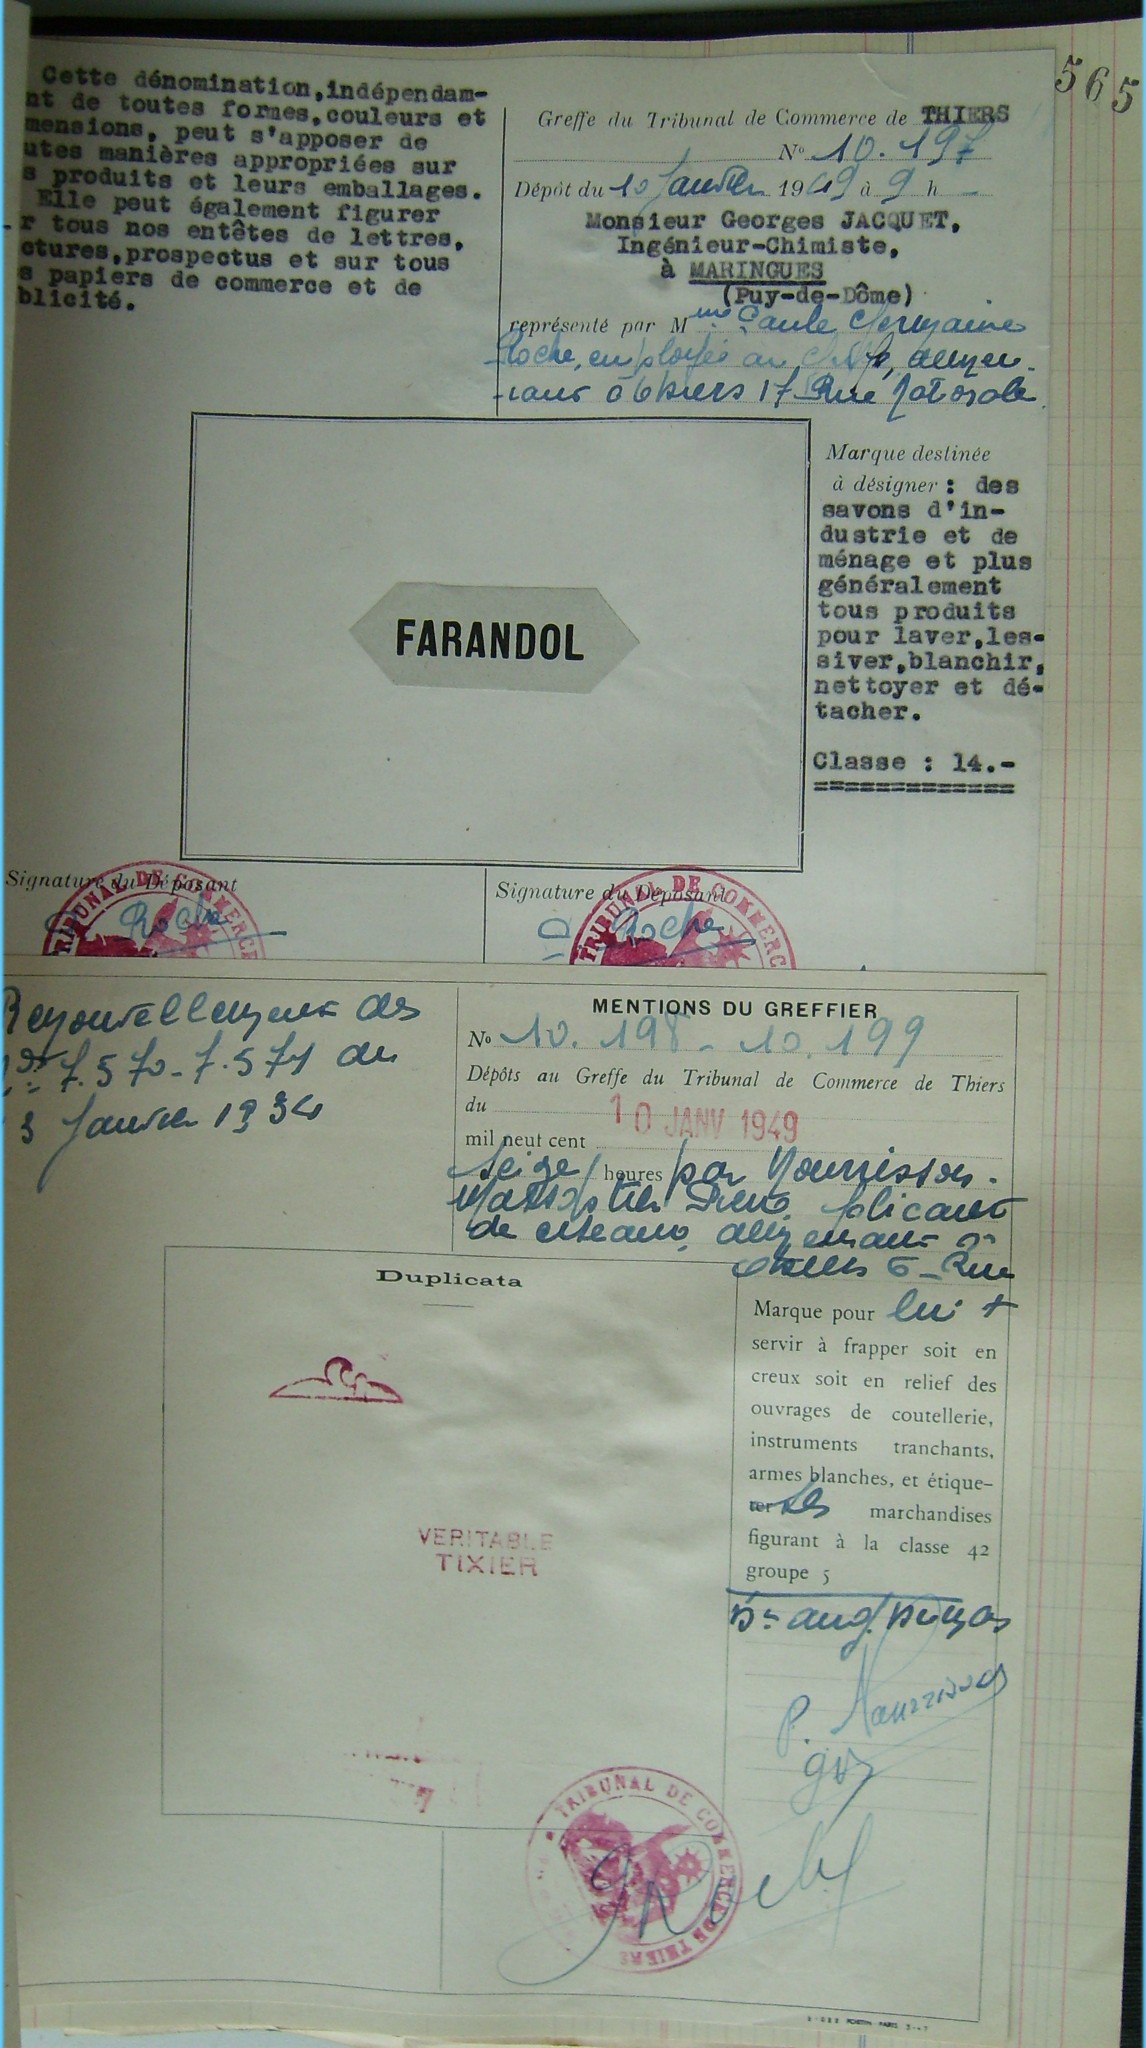 565
Cette dénomination, indépendam-
nt de toutes formes, couleurs et
mensions, peut s'apposer de
utes manières appropriées sur
s produits et leurs emballages.
Elle peut également figurer
r tous nos entêtes de lettres,
ctures, prospectus et sur tous
s papiers de commerce et de
blicité.
Greffe du Tribunal de Commerce de THIERS
N° 10.197
Dépôt du 10 Janvier 1949 à 9 h
Monsieur Georges JACQUET,
Ingénieur-Chimiste,
à MARINGUES
(Puy-de-Dôme)
représenté par Mme Paule Germaine
Roche, employée au Greffe, demeu-
rant à Thiers 17 Rue Nationale
FARANDOL
Marque destinée
à désigner : des
savons d'in-
dustrie et de
ménage et plus
généralement
tous produits
pour laver, les-
siver, blanchir,
nettoyer et dé-
tacher.
Classe : 14.-
Signature du Déposant
Roche
TRIBUNAL DE COMMERCE
Signature du Déposant
Roche
TRIBUNAL DE COMMERC
Renouvellement des
nos 7.570-7.571 du
3 Janvier 1934
MENTIONS DU GREFFIER
N° 10.198-10.199
Dépôts au Greffe du Tribunal de Commerce de Thiers
du
10 JANV 1949
mil neuf cent
seize heures par Nourrisson-
fabricant
de ciseaux, demeurant à
Thiers 6 - Rue
Duplicata
VERITABLE
TIXIER
Marque pour lui +
servir à frapper soit en
creux soit en relief des
ouvrages de coutellerie,
instruments tranchants,
armes blanches, et étique-
ter les marchandises
figurant à la classe 42
groupe 5
P. Nourrisson
Roche
TRIBUNAL DE COMMERCE DE THIERS